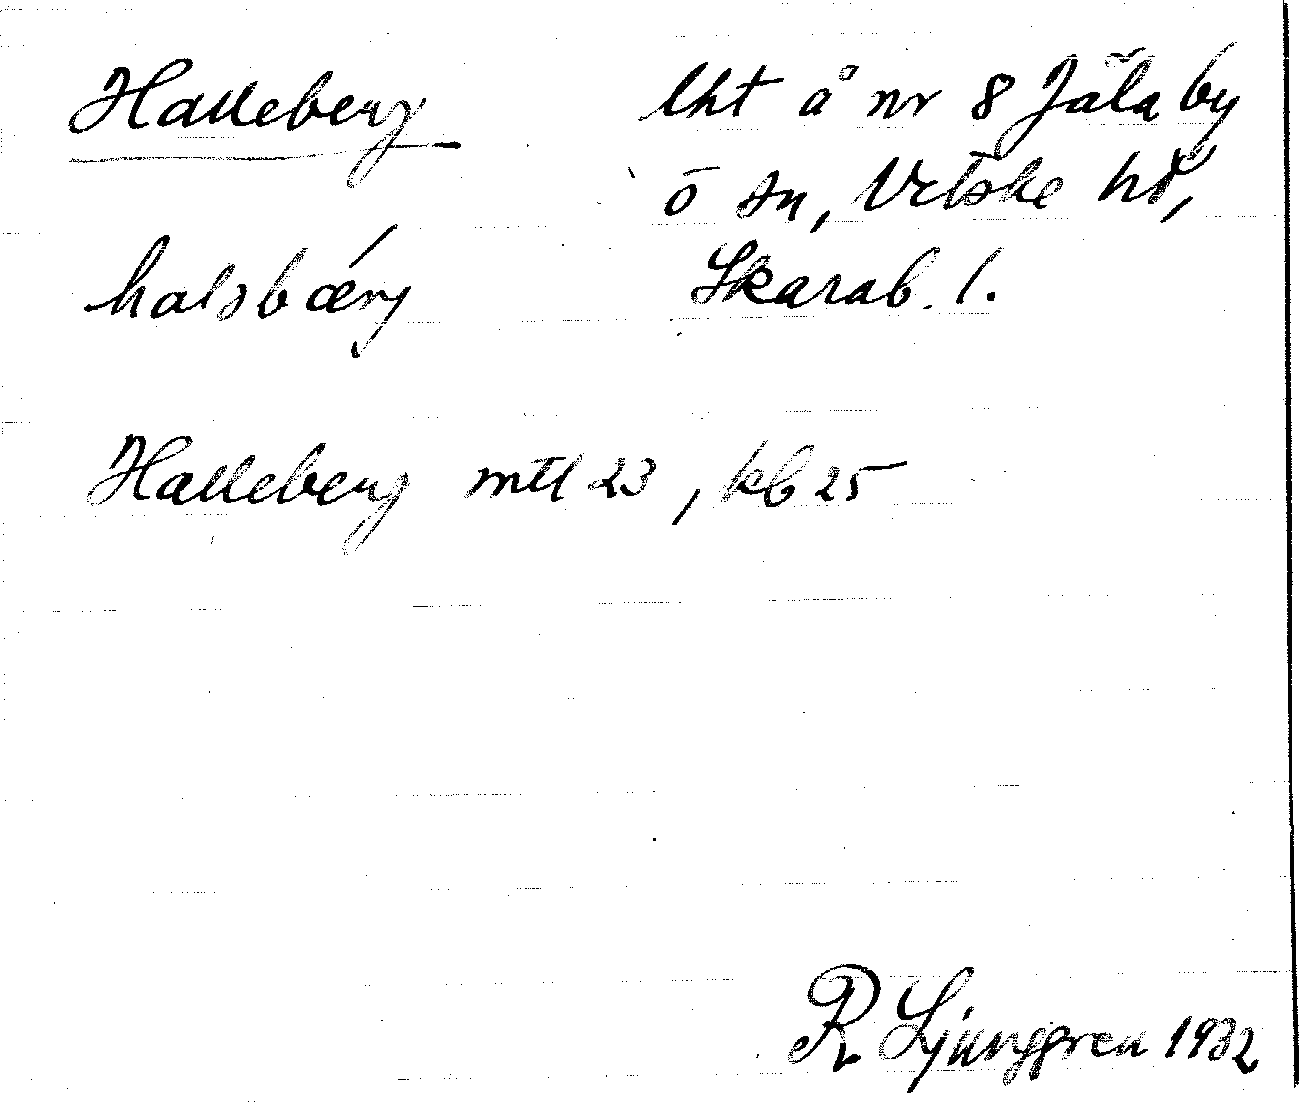 Halleberg
lht å nr 8 Jäla by
o sn, Vilske hd,
Skarab. l.
halsbærj
Halleberg mtl 23, kb 25
R Ljunggren 1932